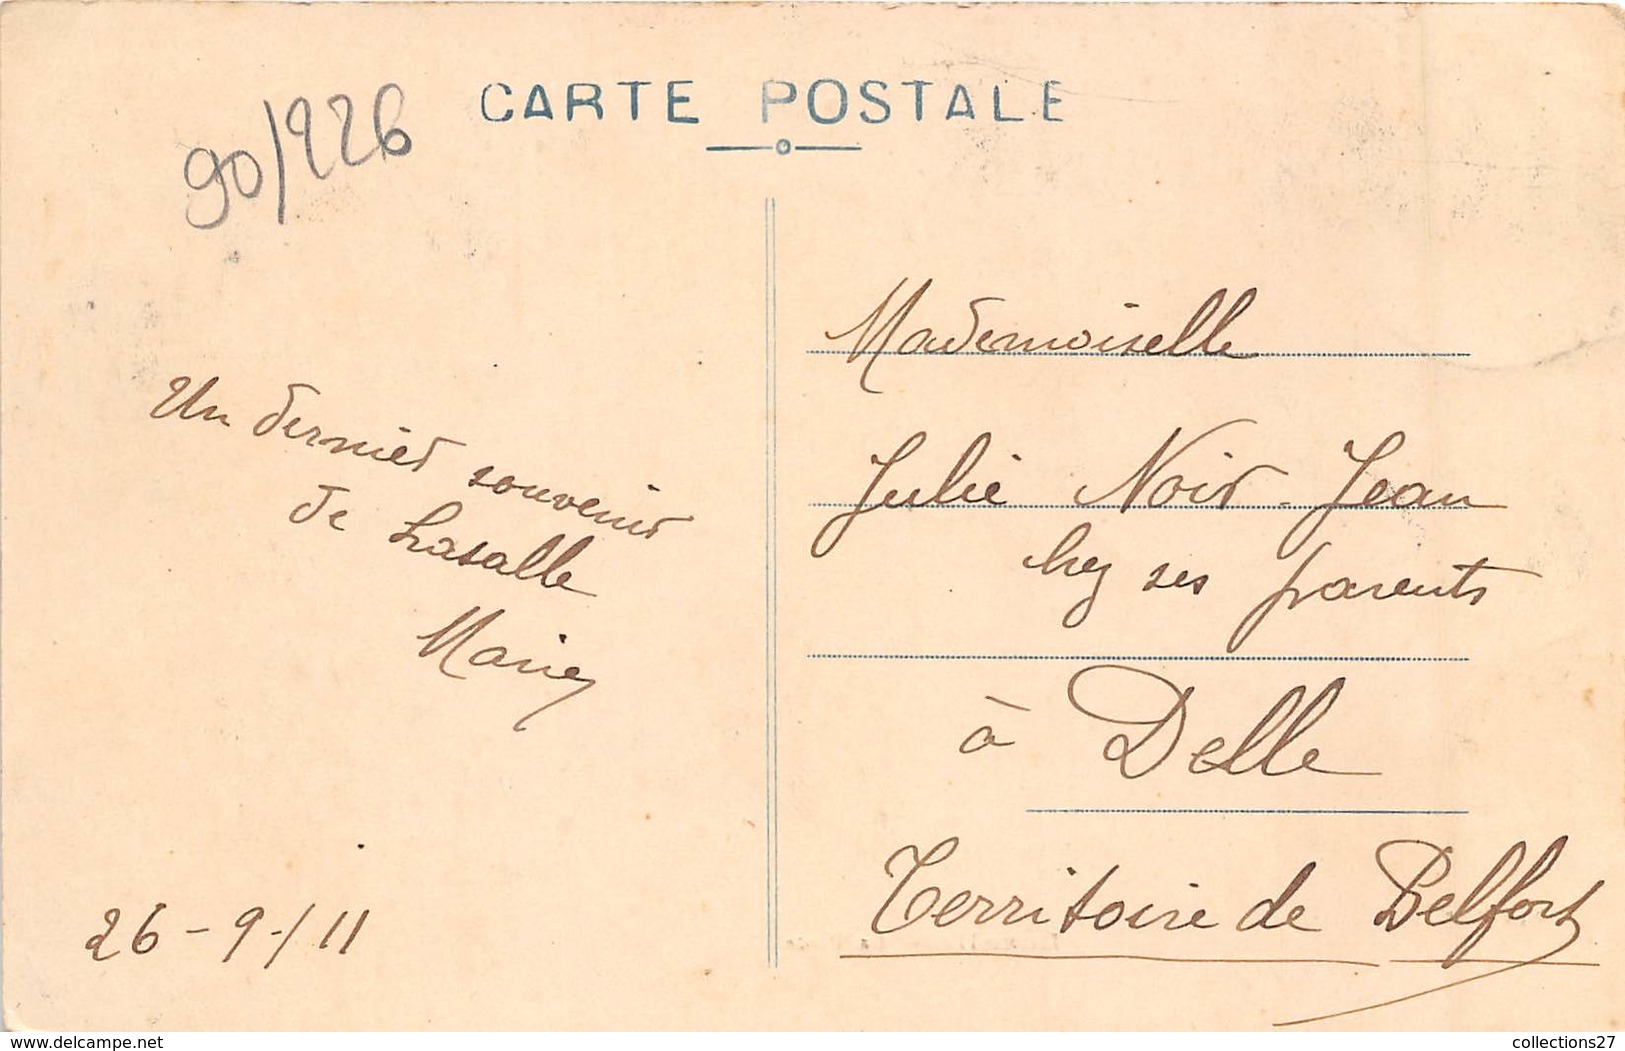 CARTE POSTALE
90/226
Un dernier souvenir
de Lasalle
Marie
26-9-/11
Mademoiselle
Julie Noir-Jean
chez ses parents
à Delle
Territoire de Belfort
www.delcampe.net
collections27